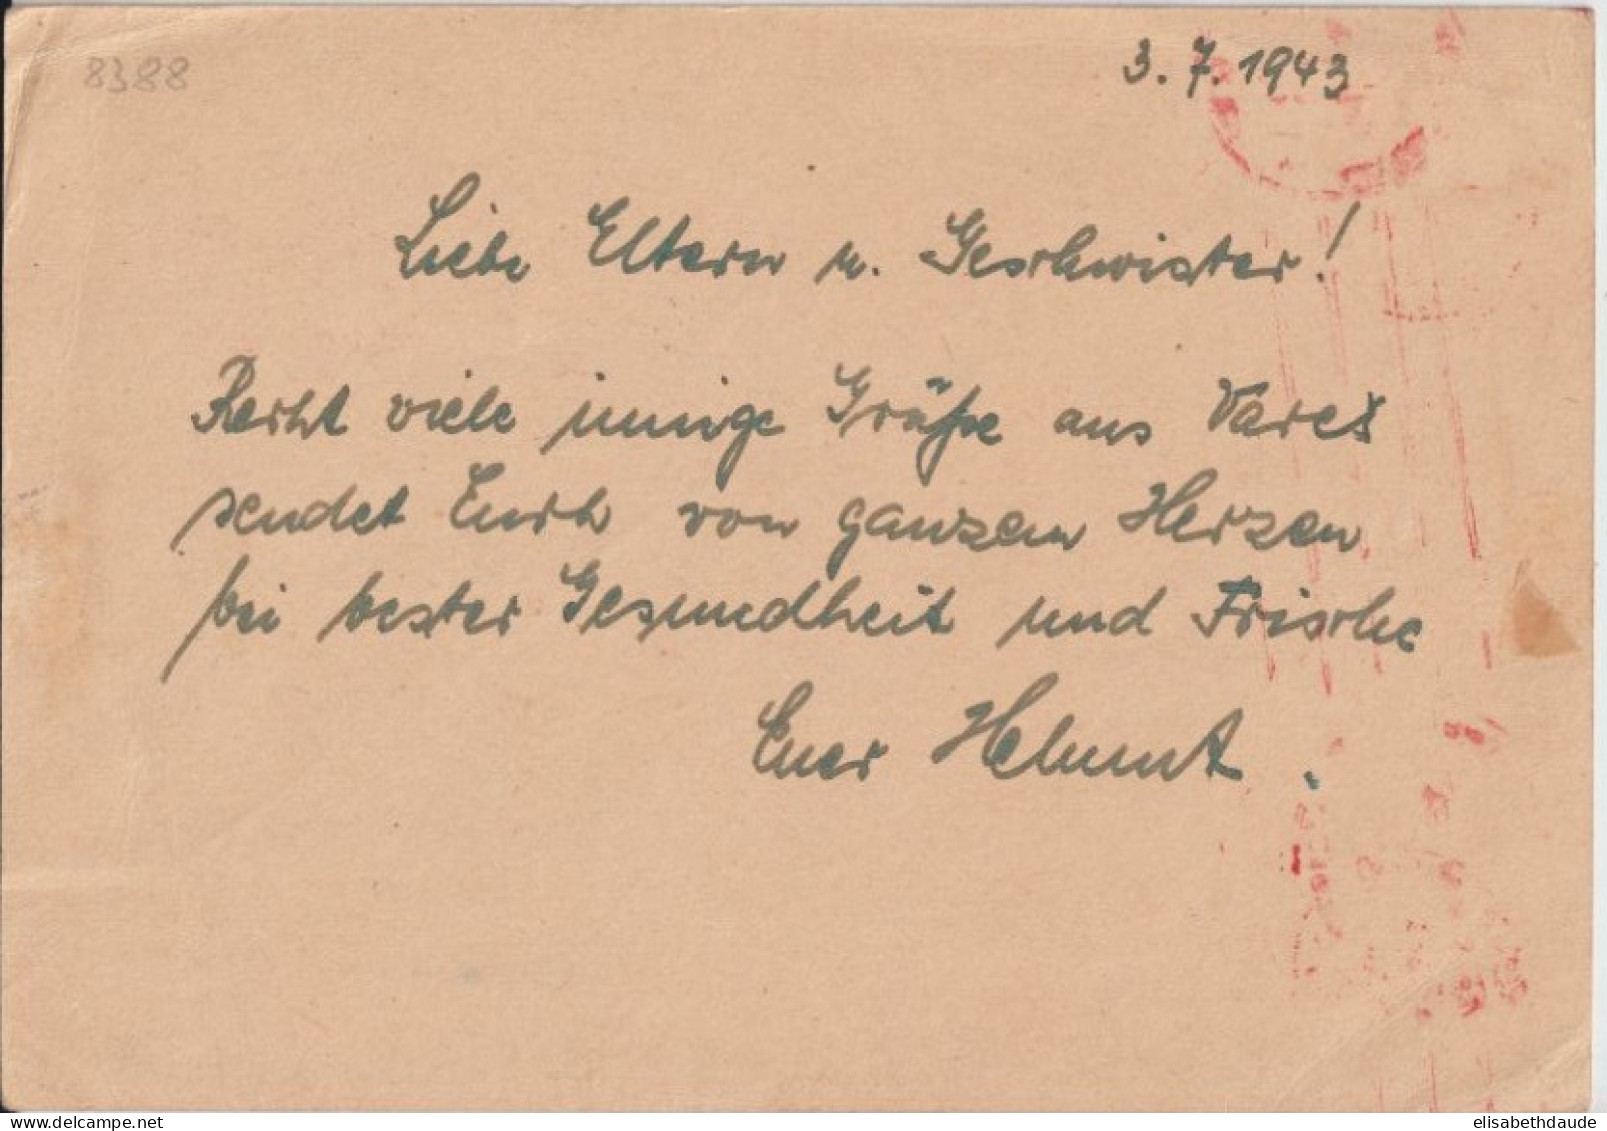 8388
3.7.1943
Liebe Eltern u. Geschwister!
Recht viele innige Grüße aus Vareš
sendet Euch von ganzem Herzen
bei bester Gesundheit und Frische
Euer Helmut.
elisabethdaude